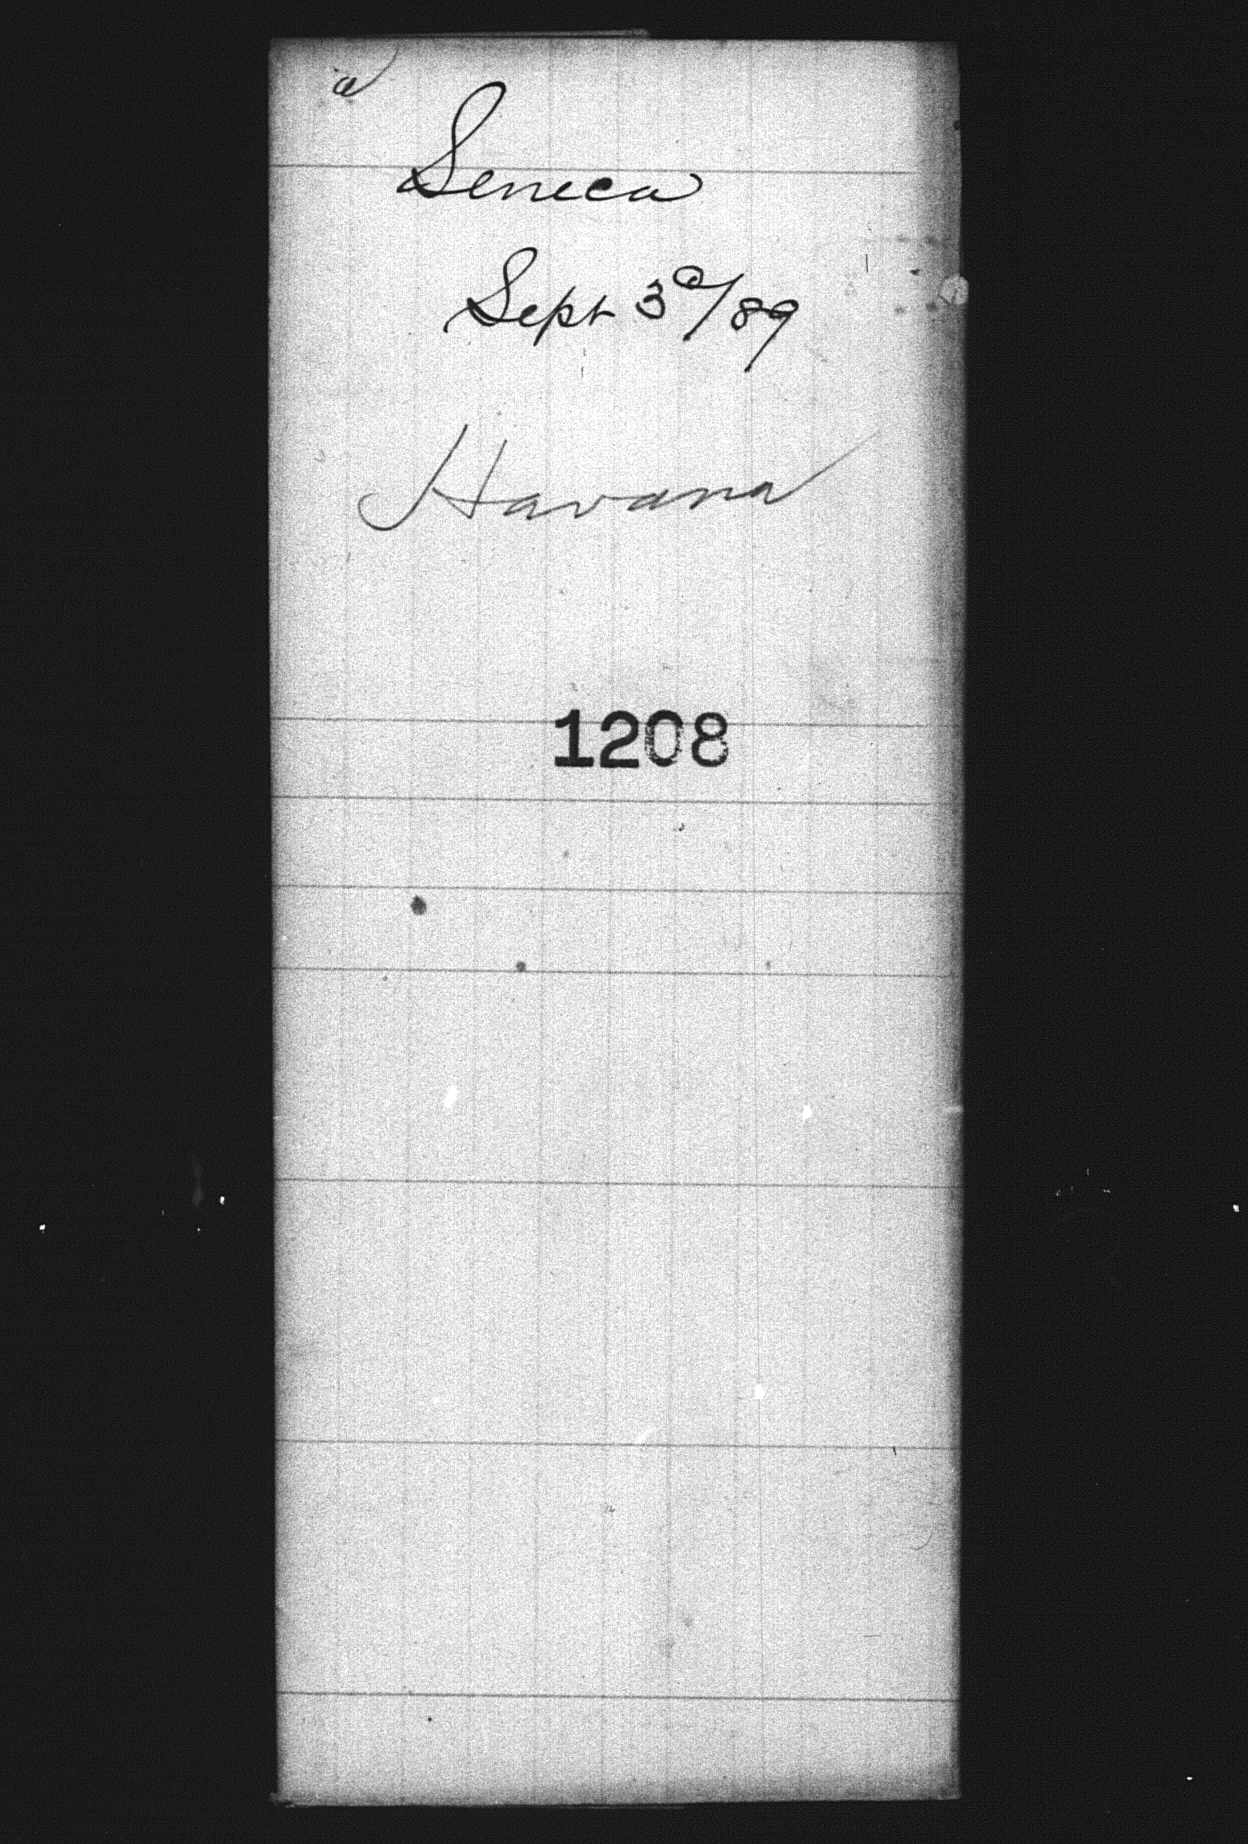 a
Seneca
Sept 30/89
Havana
1208